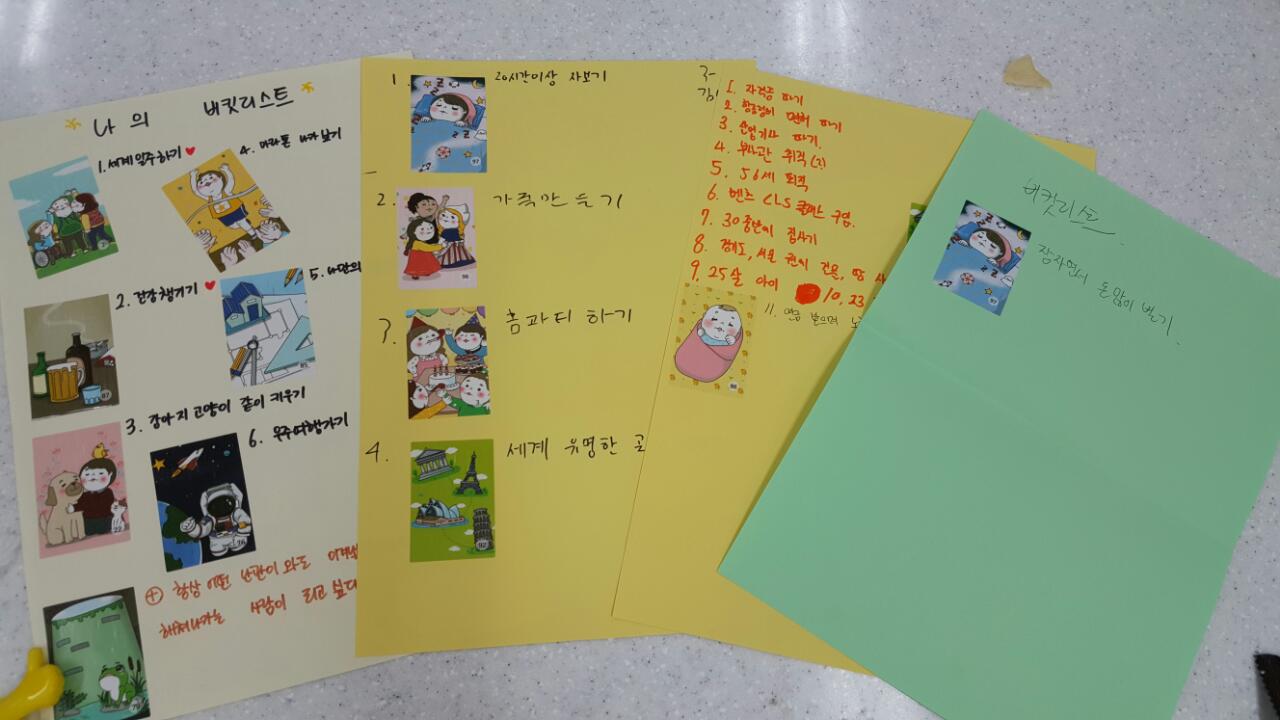 나의 버킷리스트
1. 세계일주하기 ♥
4. 마라톤 나가보기
2. 건강챙기기 ♥
5. 나만의
3. 강아지 고양이 같이 키우기
6. 우주여행가기
⊕ 항상 어떤 난관이 와도
헤쳐나가는 사람이 되고 싶다
1. 20시간이상 자보기
2. 가족만들기
3. 홈파티 하기
4. 세계 유명한 곳
3-
1. 자격증 따기
2. 항공정비 면허 따기
3. 산업기사 따기.
4. 부사관 취직
5. 56세 퇴직
6. 벤츠 CLS 쿠페 구입.
7. 30중반에 집사기
8. 경기도, 서울 권에 건물, 땅 사
9. 25살 아이 10, 23
11. 연금 받으며
버킷리스트
잠자면서 돈많이 벌기.